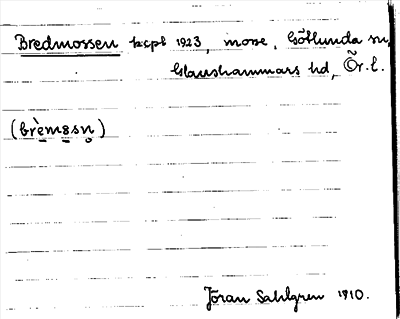 Bredmossen kspl 1923, mosse, Götlunda sn,
Glanshammars hd, Ör.l.
(brèmₒsn̥)
Jöran Sahlgren 1910.